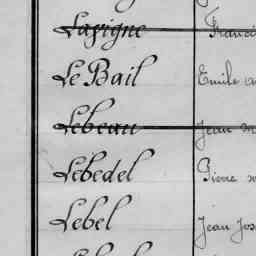 Lavigne
Le Bail Emile
Lebeau Jean
Lebedel Pierre
Lebel Jean Jos